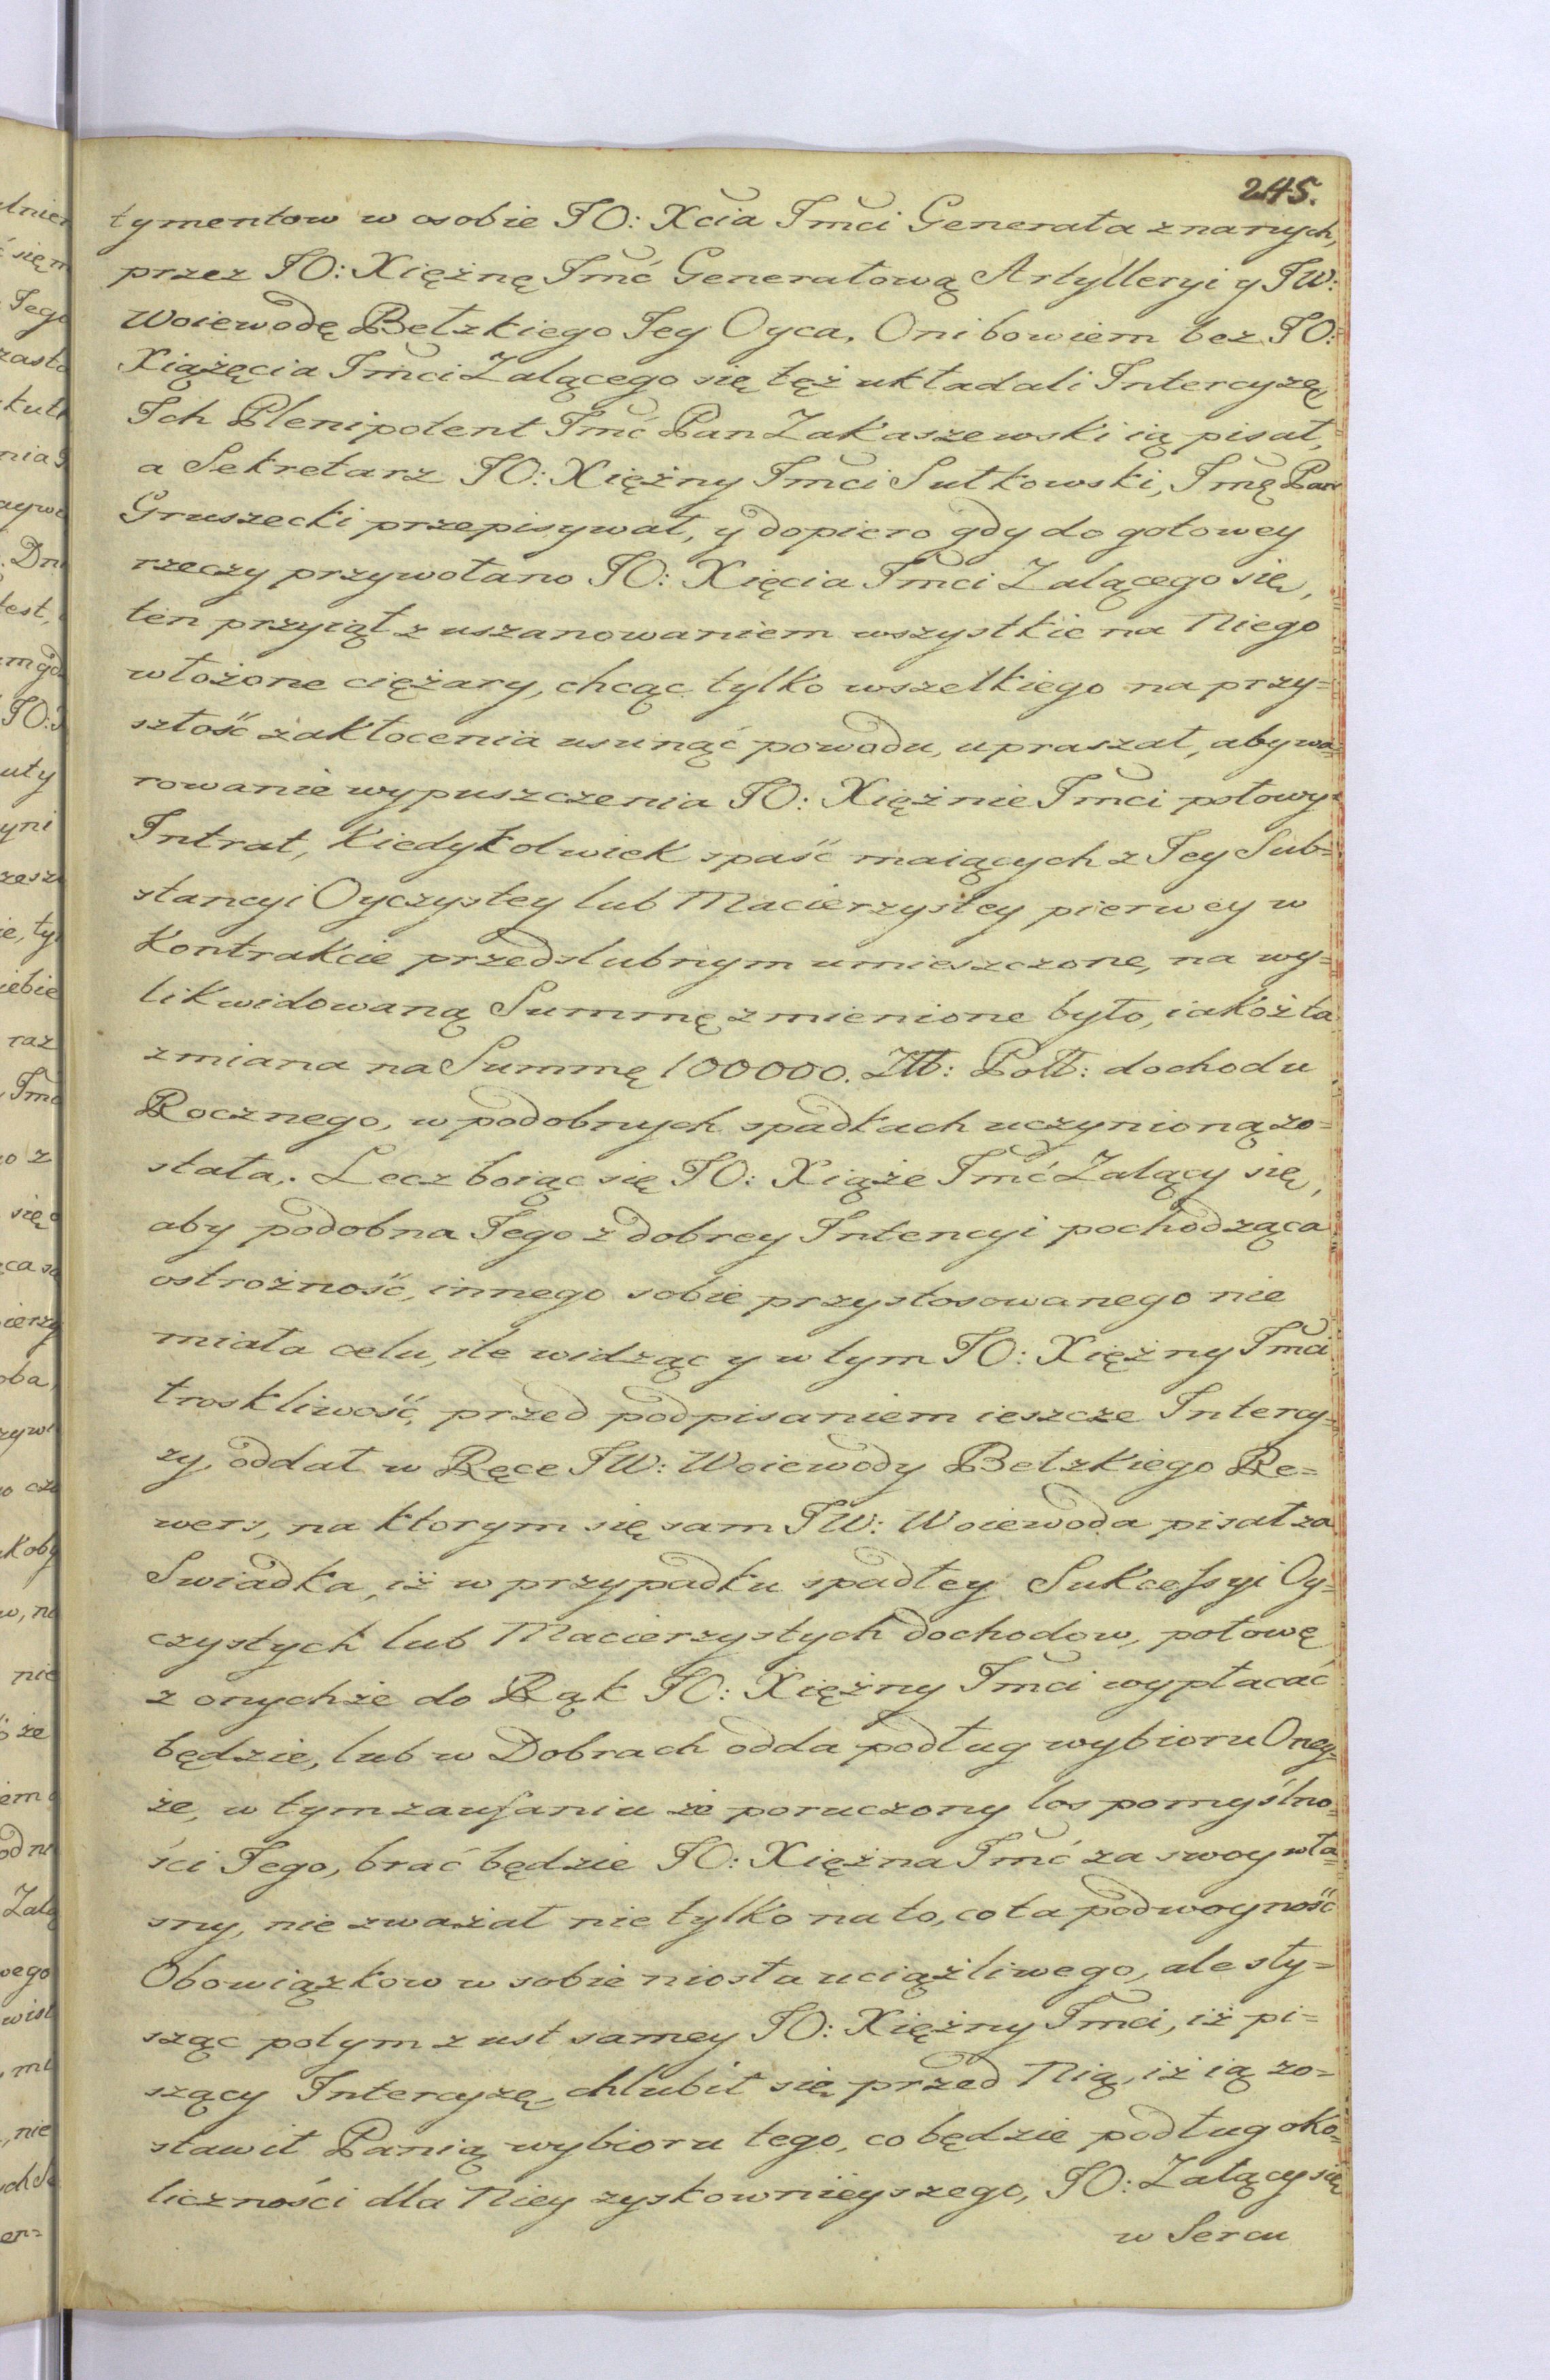 245.
tymentow w osobie JO: Xcia Jmci Generała znanych,
przez JO: Xiężnę Jmć Generałową Artylleryi y JW:
Woiewodę Bełzkiego Jey Oyca, Oni bowiem bez JO:
Xiążęcia Jmci Zalącego się też układali Intercyzę
Ich Plenipotent Jmć Pan Zakaszewski ią pisał,
a Sekretarz JO: Xiężny Jmci Sułkowski, Jmę Pan
Gruszecki przepisywał, y dopiero gdy do gotowey
rzeczy przywołano JO: Xięcia Jmci Zalącego się,
ten przyiął z uszanowaniem wszystkie na Niego
włożone ciężary, chcąc tylko wszelkiego na przy=
szłość zakłocenia usunąć powodu, upraszał, aby wa=
rowanie wypuszczenia JO: Xiężnie Jmci połowy
Intrat, kiedykolwiek spaść maiących z Jey Sub=
stancyi Oyczystey lub Macierzystey pierwey w
Kontrakcie przedslubnym umieszczone, na wy=
likwidowaną Summę zmienione było, iakoż ta
zmiana na Summę 100000. Złł: Poll: dochodu
Rocznego, w podobnych spadkach uczynioną zo=
stała. Lecz boiąc się JO: Xiąże Jmć Zalący się,
aby podobna Jego z dobrey Intencyi pochodząca
ostrożność, innego sobie przystosowanego nie
miała celu, ile widząc y w tym JO: Xiężny Jmci
troskliwość, przed podpisaniem ieszcze Intercy=
zy, oddał w Ręce JW: Woiewody Bełzkiego Re=
wers, na ktorym się sam JW: Woiewoda pisał za
Swiadka, iż w przypadku spadłey Sukcessyi Oy=
czystych lub Macierzystych dochodow, połowę
z onychże do Rąk JO: Xiężny Jmci wypłacać
będzie, lub w Dobrach odda podług wybioru Oney=
że, w tym zaufaniu że poruczony los pomyślno=
ści Jego, brać będzie JO: Xiężna Jmć za swoy wła=
sny, nie zważał nie tylko na to, co ta podwoyność
Obowiązkow w sobie niosła uciążliwego, ale sły=
sząc potym z ust samey JO: Xiężny Jmci, iż pi=
szący Intercyzę, chlubił się przed Nią, iż ią zo=
stawił Panią wybioru tego, co będzie podług oko=
liczności dla Niey zyskownieyszego, JO: Zalący się
w Sercu